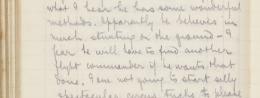 what I hear he has some wonderful
methods. Apparently he believes in
much stunting on the ground - I
fear he will have to find another
flight commander if he wants that
done. I am not going to start silly
spectacular circus tricks to please